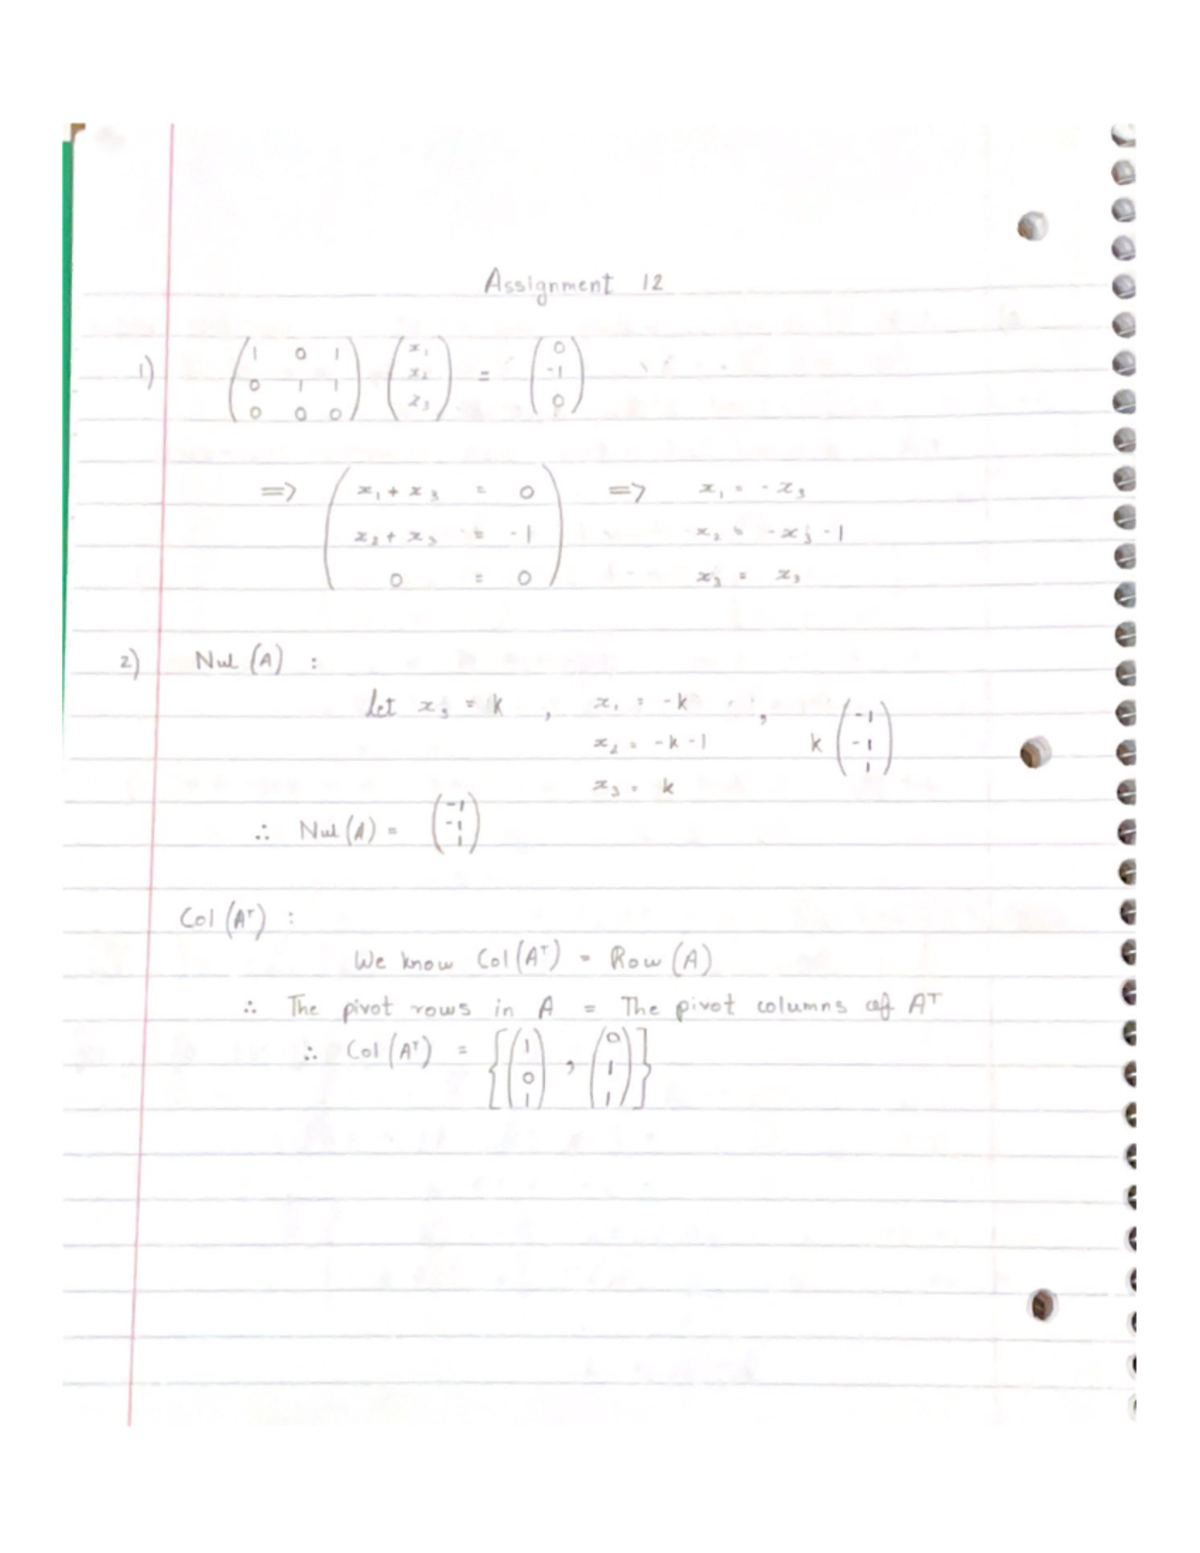 Assignment 12
1) (1 0 1
0 1 1
0 0 0) (x₁
x₂
x₃) = (0
-1
0)
=> (x₁ + x₃ = 0
x₂ + x₃ = -1
0 = 0) => x₁ = -x₃
x₂ = -x₃ - 1
x₃ = x₃
2) Nul (A) :
Let x₃ = k , x₁ = -k , k (-1
-1
1)
x₂ = -k - 1
x₃ = k
∴ Nul (A) = (-1
-1
1)
Col (Aᵀ) :
We know Col (Aᵀ) = Row (A)
∴ The pivot rows in A = The pivot columns of Aᵀ
∴ Col (Aᵀ) = {(1
0
1) , (0
1
1)}